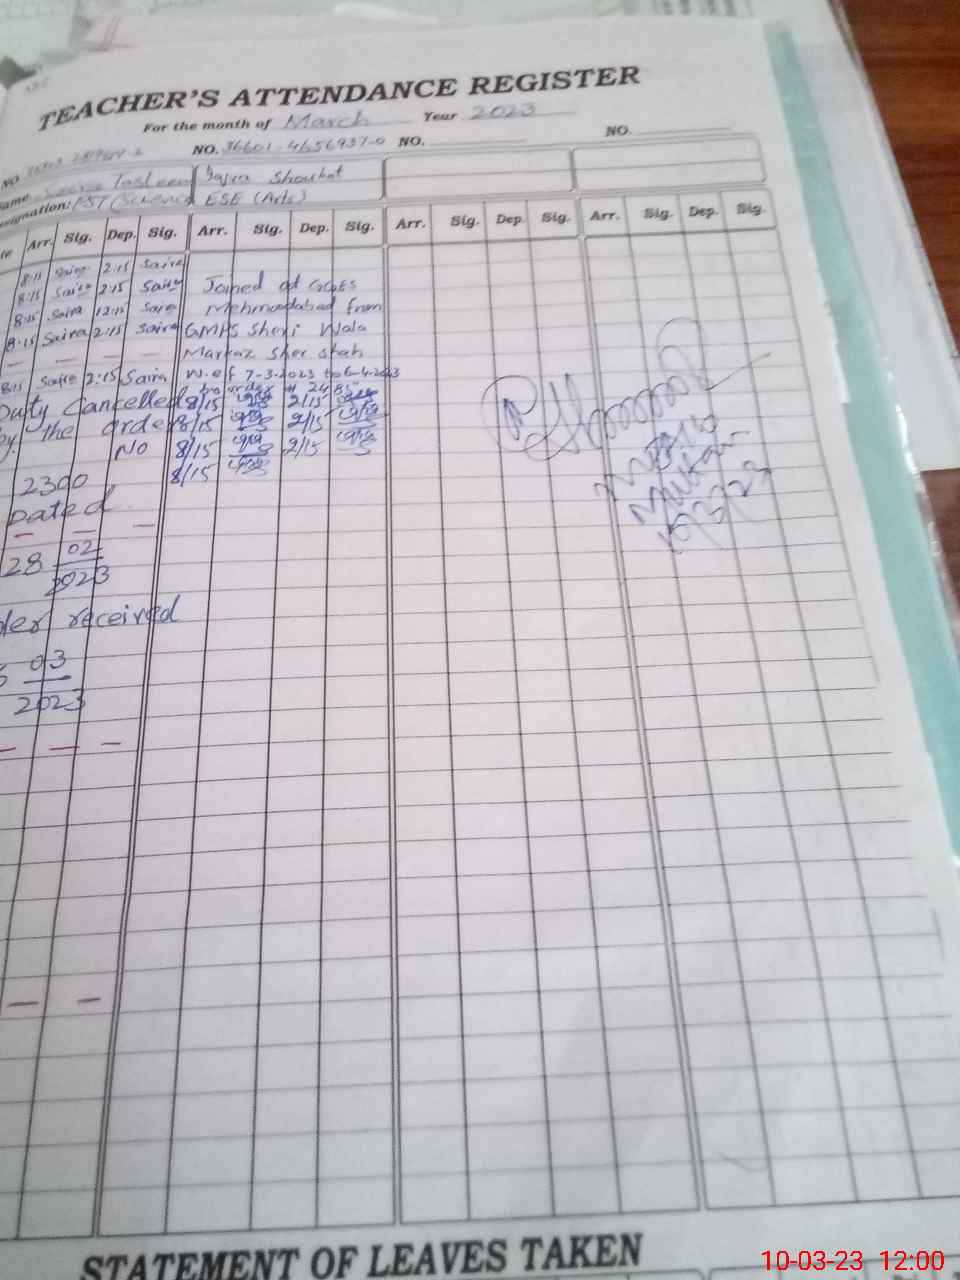 TEACHER'S ATTENDANCE REGISTER
For the month of March Year 2023
NO. NO. 36601-4656937-0 NO. NO.
Shoukat
ESE (Arts)
Arr. Sig. Dep. Sig. Arr. Sig. Dep. Sig. Arr. Sig. Dep. Sig. Arr. Sig. Dep. Sig.
8:15 Saira 2:15 Saira
8:15 Saira 2:15 Saira Joined at GGES
8:15 Saira 12:15 Saira Mehmoodabad from
8:15 Saira 2:15 Saira GMPS Sheri Wala
— — — Markaz Sher Shah
8:15 Saira 2:15 Saira W.e.f 7-3-2023 to 6-4-2023
by order # 24
Duty Cancelled 8/15 2/15
by the order 8/15 2/15
NO 8/15 2/15
8/15
2300
Dated
— — —
28 02
2023
received
03
2023
— — —
— —
Multan
10/3/23
STATEMENT OF LEAVES TAKEN
10-03-23 12:00